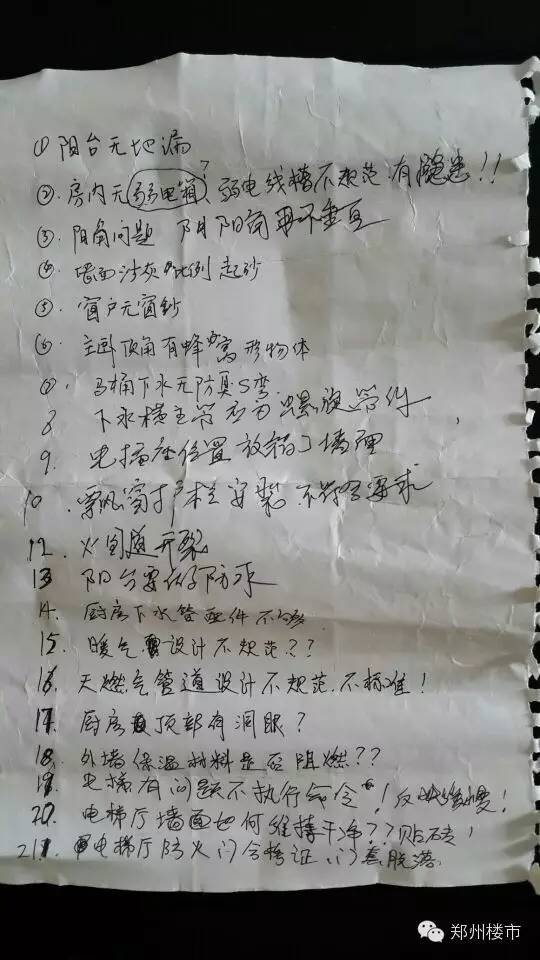 ① 阳台无地漏
② 房内无弱电箱、弱电线槽不规范.有隐患!!
③. 阳角问题 阴阳角不垂直
④. 墙面沙灰比例 起砂
⑤. 窗户无窗纱
⑥. 主卧顶角有蜂窝形物体
⑦. 马桶下水无防臭S弯
8 下水横主管应为螺旋管件
9. 电插座位置放错了墙里
10. 飘窗护栏安装 不符合要求
12. 火烟道开裂
13 阳台要做防水
14. 厨房下水管配件不够
15. 暖气设计不规范??
16. 天燃气管道设计不规范.不标准!
17. 厨房顶部有洞眼?
18. 外墙保温材料是否阻燃??
19. 电梯有问题不执行命令!反映缓慢!
20. 电梯厅墙面如何维持干净??贴砖!
21. 电梯厅防火门合格证,门脱落.
郑州楼市